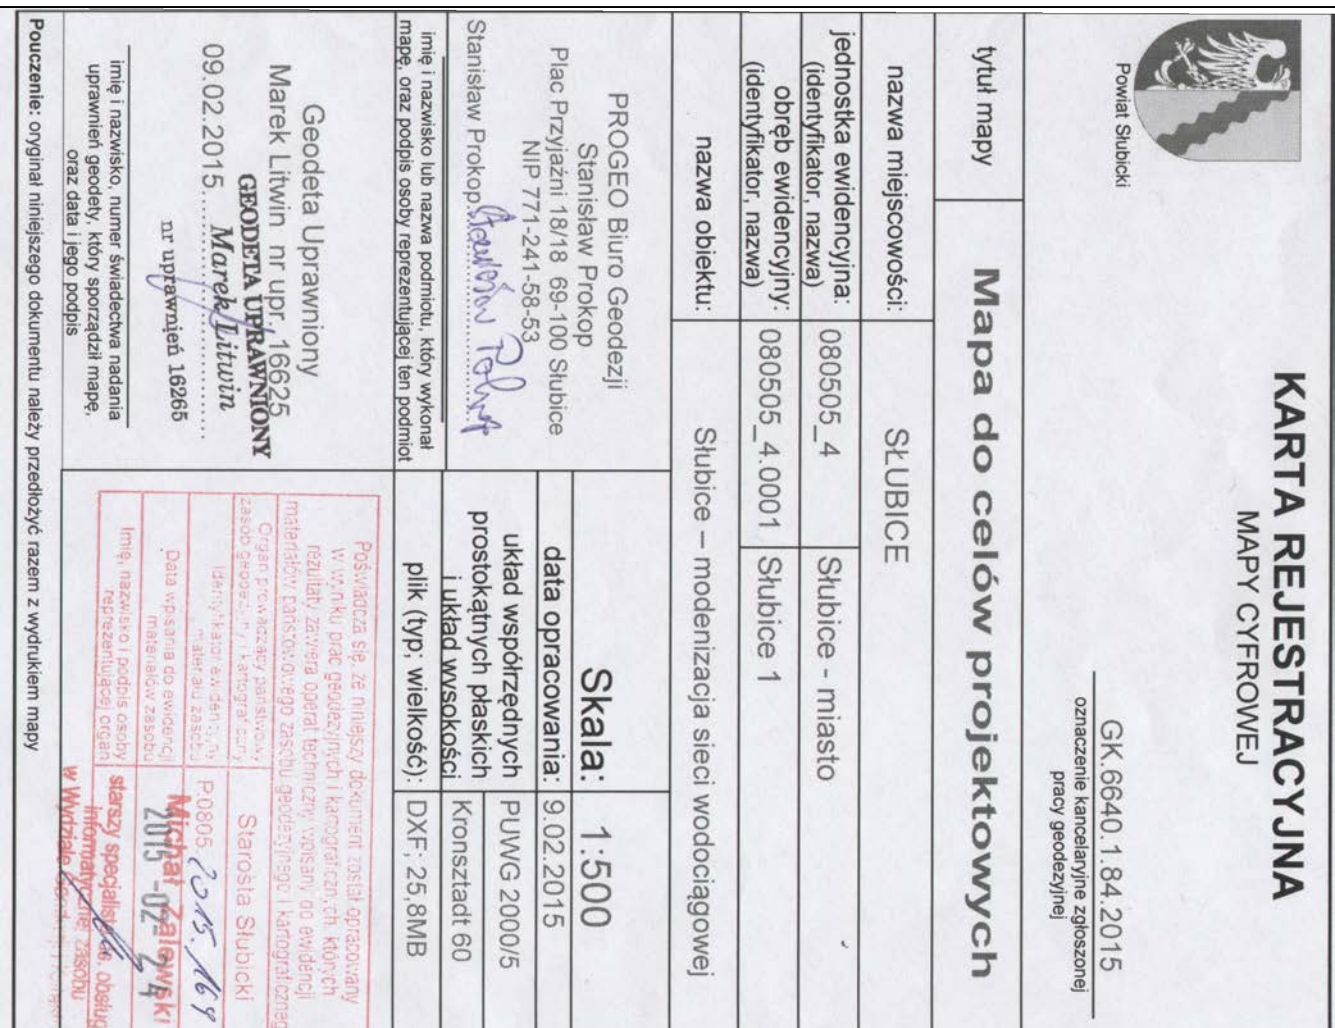 KARTA REJESTRACYJNA
MAPY CYFROWEJ
Powiat Słubicki
GK.6640.1.84.2015
oznaczenie kancelaryjne zgłoszonej
pracy geodezyjnej
tytuł mapy
Mapa do celów projektowych
nazwa miejscowości:
SŁUBICE
jednostka ewidencyjna:
(identyfikator, nazwa)
080505_4
Słubice - miasto
obręb ewidencyjny:
(identyfikator, nazwa)
080505_4.0001
Słubice 1
nazwa obiektu:
Słubice – modenizacja sieci wodociągowej
PROGEO Biuro Geodezji
Stanisław Prokop
Plac Przyjaźni 18/18 69-100 Słubice
NIP 771-241-58-53
Stanisław Prokop
imię i nazwisko lub nazwa podmiotu, który wykonał
mapę, oraz podpis osoby reprezentującej ten podmiot
Skala: 1:500
data opracowania:
9.02.2015
układ współrzędnych
prostokątnych płaskich
i układ wysokości
PUWG 2000/5
Kronsztadt 60
plik (typ; wielkość):
DXF; 25,8MB
Geodeta Uprawniony
Marek Litwin nr upr. 16625
GEODETA UPRAWNIONY
09.02.2015. Marek Litwin
nr uprawnień 16265
imię i nazwisko, numer świadectwa nadania
uprawnień geodety, który sporządził mapę,
oraz data i jego podpis
Poświadcza się, że niniejszy dokument został opracowany
w wyniku prac geodezyjnych i kartograficznych, których
rezultaty zawiera operat techniczny wpisany do ewidencji
materiałów państwowego zasobu geodezyjnego i kartograficzneg
Organ prowadzący państwowy
zasób geodezyjny i kartograficzny
Starosta Słubicki
Identyfikator ewidencyjny
materiału zasobu
P.0805. 2015. 164
Data wpisania do ewidencji
materiałów zasobu
Michał Zalewski
2015 -02- 24
Imię, nazwisko i podpis osoby
reprezentującej organ
starszy specjalista ds. obsług
informatycznej zasobu
w Wydziale
Pouczenie: oryginał niniejszego dokumentu należy przedłożyć razem z wydrukiem mapy